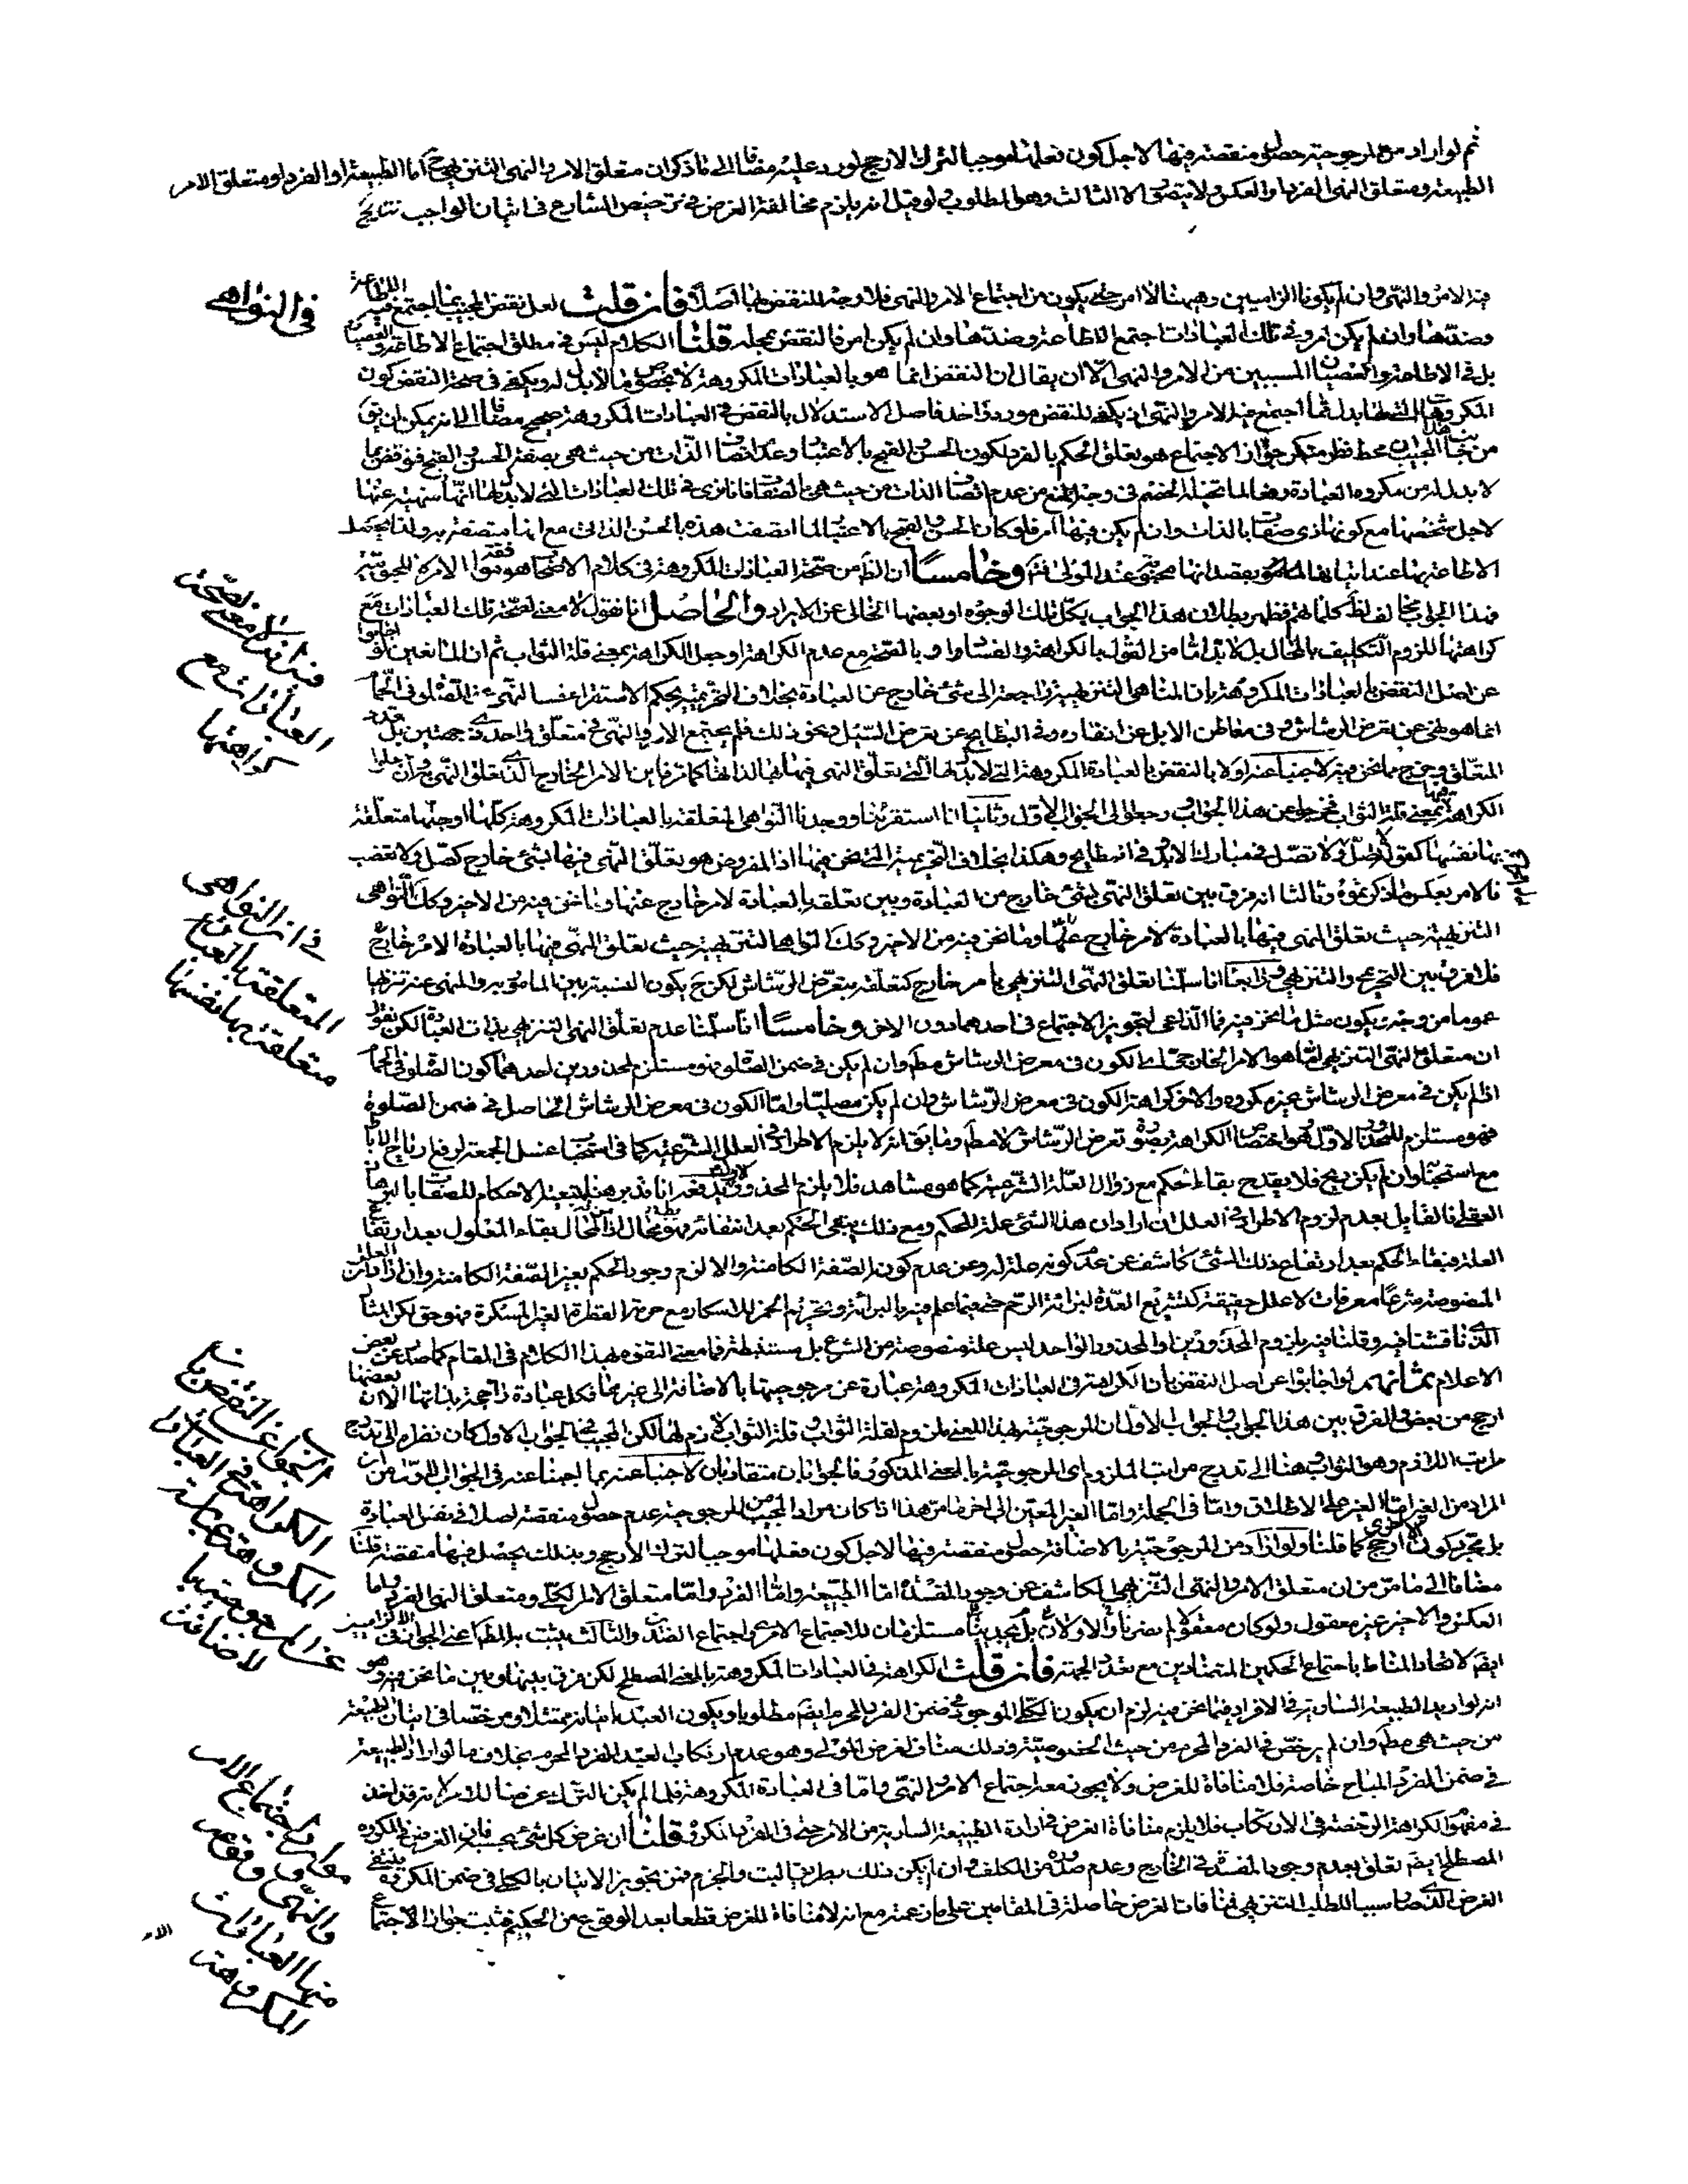 ثم لو اراد مع المرجوحية حصول منقصة فيها لاجل كون فعلها موجبا لترك الارجح لورد عليه مضافا الى ما ذكر ان متعلق الامر والنهى التنزيهى ح اما الطبيعة او الفرد او متعلق الامر
الطبيعة ومتعلق النهى الفرد او العكس ولا يتصور الا الثالث وهو المطلوب لو قيل انه يلزم مخالفة الغرض فى ترخيص الشارع فى اتيان الواجب نتايج
فى النواهى
فيه الامر والنهى وان لم يكونا الزاميين وهيهنا لا امر حتى يكون من اجتماع الامر والنهى فلا وجه للنقض بها اصلا فان قلت لعل نقض المجيب بما اجتمع فيه الاطاعة
وضدها وان لم يكن امر وفى تلك العبادات اجتمع الاطاعة وضدها وان لم يكن امر فالنقض بمحله قلنا الكلام ليس فى مطلق اجتماع الاطاعة والعصيان
بل فى الاطاعة والعصيان المسببين من الامر والنهى الا ان يقال ان النقض انما هو بالعبادات المكروهة لا بخصوص ما لا بدل له ويكفى فى صحة النقض كون
المكروهات التى لها بدل مما اجتمع فيه الامر والنهى اذ يكفى للنقض مورد واحد فاصل الاستدلال بالنقض فى العبادات المكروهة صحيح مضافا الى انه يمكن ان يق
من جانب المجيب ان محط نظر منكر جواز الاجتماع هو تعلق الحكم بالفرد لكون الحسن والقبح بالاعتبار وعدم اتصاف الذات من حيث هى بصفة الحسن والقبح فنوقض بما
لا بدل له من مكروه العبادة رفعا لما تخيله الخصم فى وجه المنع من عدم اتصاف الذات من حيث هى بالصفات فانا نرى فى تلك العبادات التى لا بدل لها انها منهية عنها
لاجل تشخصها مع كونها ذى صفة بالذات وان لم يكن فيها امر فلو كان الحسن والقبح بالاعتبار لما اتصفت هذه بالحسن الذاتى مع انها متصفة به ولذا يحصل
الاطاعة بها عند اتيانها المامور بقصد انها محبوبة عند المولى فتم وخامسا ان الظ من صحة العبادات المكروهة فى كلام الاصحاب هو موافقة الامر فالمحقق
فهذا الجواب مخالف لظ كلماتهم فظهر بطلان هذا الجواب بكل تلك الوجوه او بعضها الخالى عن الايراد والحاصل انا نقول لا معنى لصحة تلك العبادات مع
كراهتها للزوم التكليف بالمحال بل لا بد اما من القول بالكراهة والفساد او بالصحة مع عدم الكراهة او جعل الكراهة بمعنى قلة الثواب ثم ان المانعين اجابوا
عن اصل النقض بالعبادات المكروهة بان المناهى التنزيهية راجعة الى شئ خارج عن العبادة بخلاف التحريمية بحكم الاستقراء فالنهى عن الصلوة فى الحمام
انما هو نهى عن تعرض الرشاش وفى معاطن الابل عن انفاره وفى البطايح عن تعرض السيل ونحو ذلك فلم يجتمع الامر والنهى فى متعلق واحد ذى جهتين بل تعدد
المتعلق وخرج مما نحن فيه
الكراهة فيها بمعنى قلة الثواب فخروج عن هذا الجواب ورجوع الى الجواب الاول وثانيا انا استقرئنا ووجدنا النواهى المتعلقة بالعبادات المكروهة كلها او جلها متعلقة
بها نفسها كقوله لا تصل فى مبارك الابل ولا تصل فى البطايح وهكذا بخلاف التحريمية التى نحن فيها اذ المفروض هو تعلق النهى فيها بشئ خارج كصل ولا تغصب
فالامر بعكس ما ذكرتموه وثالثا انه فرق بين تعلق النهى بشئ خارج من العبادة وبين تعلقه بالعبادة لامر خارج عنها وما نحن فيه من الاخير وكك النواهى
التنزيهية حيث تعلق النهى فيها بالعبادة لامر خارج عنها
فلا فرق بين التحريمى والتنزيهى ورابعا انا سلمنا تعلق النهى التنزيهى بامر خارج كتعلقه بتعرض الرشاش لكن ح يكون النسبة بين المامور به والمنهى عنه تنزيها
عموما من وجه ويكون مثل ما نحن فيه فما الداعى لتجويز الاجتماع فى احدهما دون الاخر وخامسا انا سلمنا عدم تعلق النهى التنزيهى بذات العبادة لكن نقول
ان متعلق النهى التنزيهى اما هو الامر الخارجى اى الكون فى معرض الرشاش مط وان لم يكن فى ضمن الصلوة فهو مستلزم لمحذورين احدهما كون الصلوة فى الحمام
اذا لم يكن فى معرض الرشاش غير مكروه والاخر كراهة الكون فى معرض الرشاش وان لم يكن مصليا واما الكون فى معرض الرشاش الحاصل فى ضمن الصلوة
فهو مستلزم للمحذور الاول وهو اختصاص الكراهة بصورة تعرض الرشاش لا مط وما يق انه لا يلزم الاطراد فى العلل الشرعية كما فى استحباب غسل الجمعة لرفع ارياح الاباط
مع استحبابه وان لم يكن ريح فلا يقدح بقاء الحكم مع زوال العلة الشرعية كما هو مشاهد فلا يلزم المحذور
العقلى فالقايل بعدم لزوم الاطراد فى العلل ان اراد ان هذا الشئ علة للحكم ومع ذلك يبقى الحكم بعد انتفائه فهو محال اذ المحال بقاء المعلول بعد ارتفاع
العلة فبقاء الحكم بعد ارتفاع ذلك الشئ كاشف عن عدم كونه علة له وعن عدم كونه الصفة الكامنة والا لزم وجود الحكم بغير الصفة الكامنة وان اراد ان العلل
المنصوصة شرعا معرفات لا علل حقيقة كتشريع العدة لبرائة الرحم حتى فيما علم فيه بالبرائة وتحريم الخمر للاسكار مع حرمة القطرة الغير المسكرة فهو حق لكن
الذى ناقشنا فيه وقلنا فيه بلزوم المحذورين او المحذور الواحد ليس علة منصوصة من الشرع بل مستنبطة فما معنى التفوه بهذا الكلام فى المقام كما صدر عن بعض
الاعلام ثم انهم لو اجابوا عن اصل النقض بان الكراهة فى العبادات المكروهة عبارة عن مرجوحيتها بالاضافة الى غيرها فكل عبادة راجحة بذاتها الا ان بعضها
ارجح من بعض والفرق بين هذا الجواب والجواب الاول ان المرجوحية بهذا المعنى ملزوم لقلة الثواب وقلة الثواب لازم لها لكن المجيب فى الجواب الاول كان نظره الى تدرج
مراتب اللازم وهو الثواب وهنا الى تدرج مراتب الملزوم اى المرجوحية بالمعنى المذكور فالجوابان متقاربان لاجبنا عنه بما اجبنا عنه فى الجواب الاول من ان
المراد من الغير اما الغير على الاطلاق واما فى الجملة واما الغير المعين الى اخر ما مر هذا اذا كان مراد المجيب من المرجوحية عدم حصول منقصة اصلا فى نفس العبادة
بل مجرد كون الاخرى ارجح كما قلنا ولو اراد من المرجوحية بالاضافة حصول منقصة فيها لاجل كون فعلها موجبا لترك الارجح وبذلك يحصل فيها منقصة قلنا
مضافا الى ما مر من ان متعلق الامر والنهى التنزيهى الكاشف عن وجود المفسدة اما الطبيعة واما الفرد واما متعلق الامر الكلى ومتعلق النهى الفرد واما
العكس والاخير غير معقول ولو كان معقولا لم يضرنا والاولان
ايض لاتحاد المناط باجتماع الحكمين المتضادين مع تعدد الجهة فان قلت الكراهة فى العبادات المكروهة بالمعنى المصطلح لكن فرق بينها وبين ما نحن فيه وهو
انه لو اريد الطبيعة السارية فى الافراد فيما نحن فيه لزم ان يكون الكلى الموجود فى ضمن الفرد المحرم ايض مطلوبا ويكون العبد باتيانه ممتثلا ومرخصا فى اتيان الطبيعة
من حيث هى مط وان لم يرخص فى الفرد المحرم من حيث الخصوصية وذلك مناف لغرض المولى وهو عدم ارتكاب العبد الفرد المحرم بخلاف ما لو اراد الطبيعة
فى ضمن الفرد المباح خاصة فلا منافاة للغرض ولا يجوز معه اجتماع الامر والنهى واما فى العبادة المكروهة فلما لم يكن الترك غرضا للامر لانه قد اخذ
فى مفهوم الكراهة الرخصة فى الارتكاب فلا يلزم منافاة الغرض فى ارادة الطبيعة السارية من الامر حتى فى الفرد المكروه قلنا ان غرض كل شئ بحسبه فان الغرض فى المكروه
المصطلح ايض تعلق بعدم وجود المفسدة فى الخارج وعدم صدوره من المكلف وان لم يكن ذلك بطريق البت والجزم فمن تجويز الاتيان بالكلى فى ضمن المكروه ينتفى
الغرض الذى صار سببا للطلب التنزيهى فمنافات الغرض حاصلة فى المقامين على ما زعمته مع انه لا منافاة للغرض قطعا بعد الوقوع عن الحكيم فثبت جواز الاجتماع
الامر
فى انه لا معنى لصحة
العبادات مع
كراهتها
فى ان النواهى
المتعلقة بالعبادات
متعلقة بها بنفسها
الجواب عن النقض بان
الكراهة فى العبادات
المكروهة عبارة
عن المرجوحية بالاضافة
والنهى
منها العبادات
المكروهة